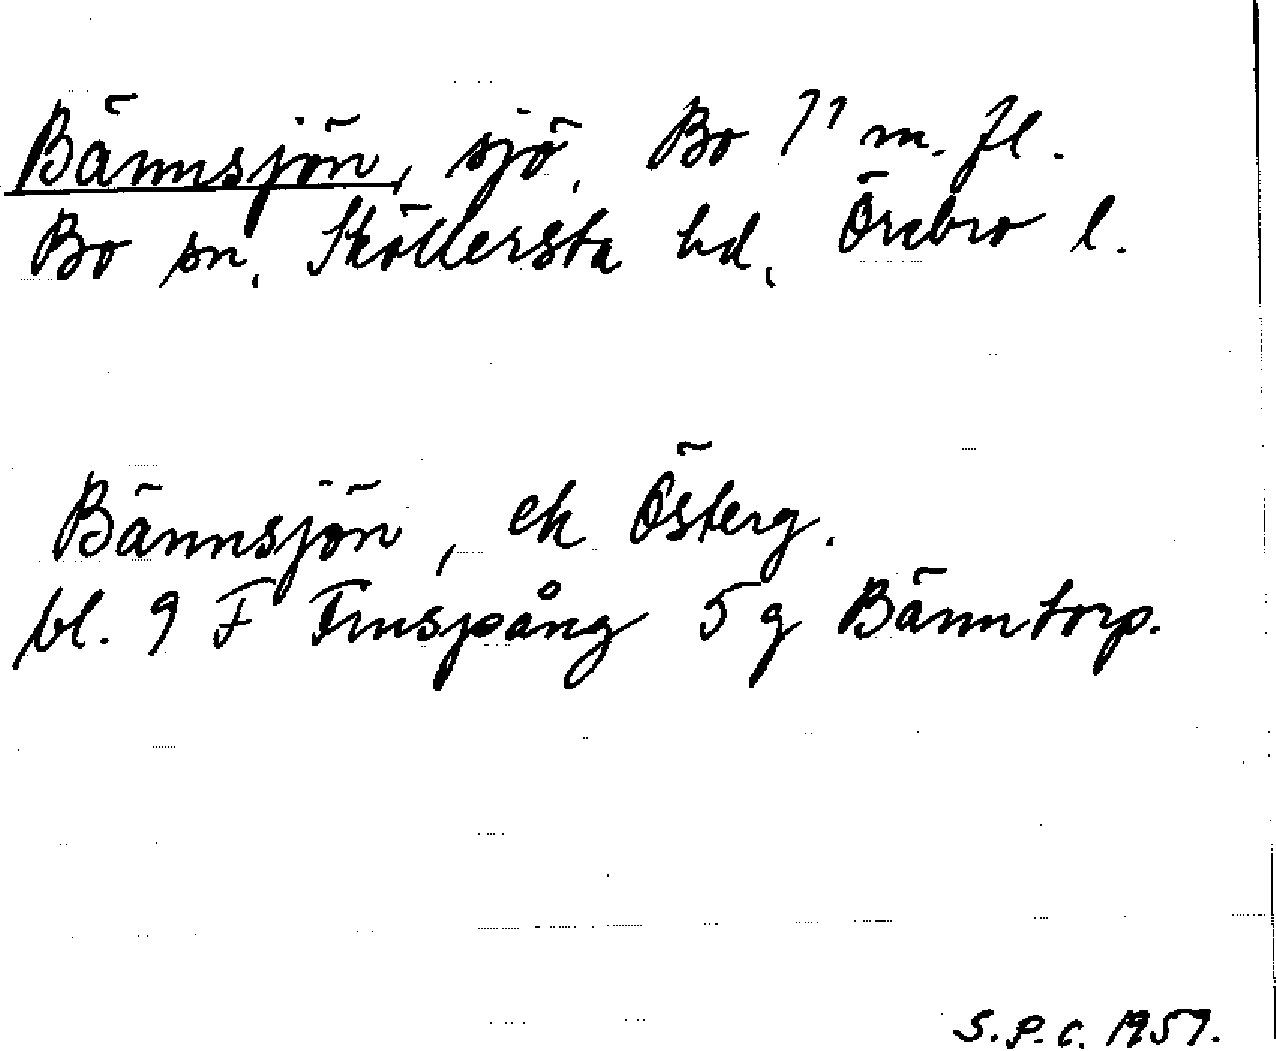 Bännsjön, sjö, Bo 1¹ m. fl.
Bo sn, Sköllersta hd, Örebro l.
Bännsjön, ek Österg.
bl. 9 F Finspång 5 g Bänntorp.
S.P.C. 1957.